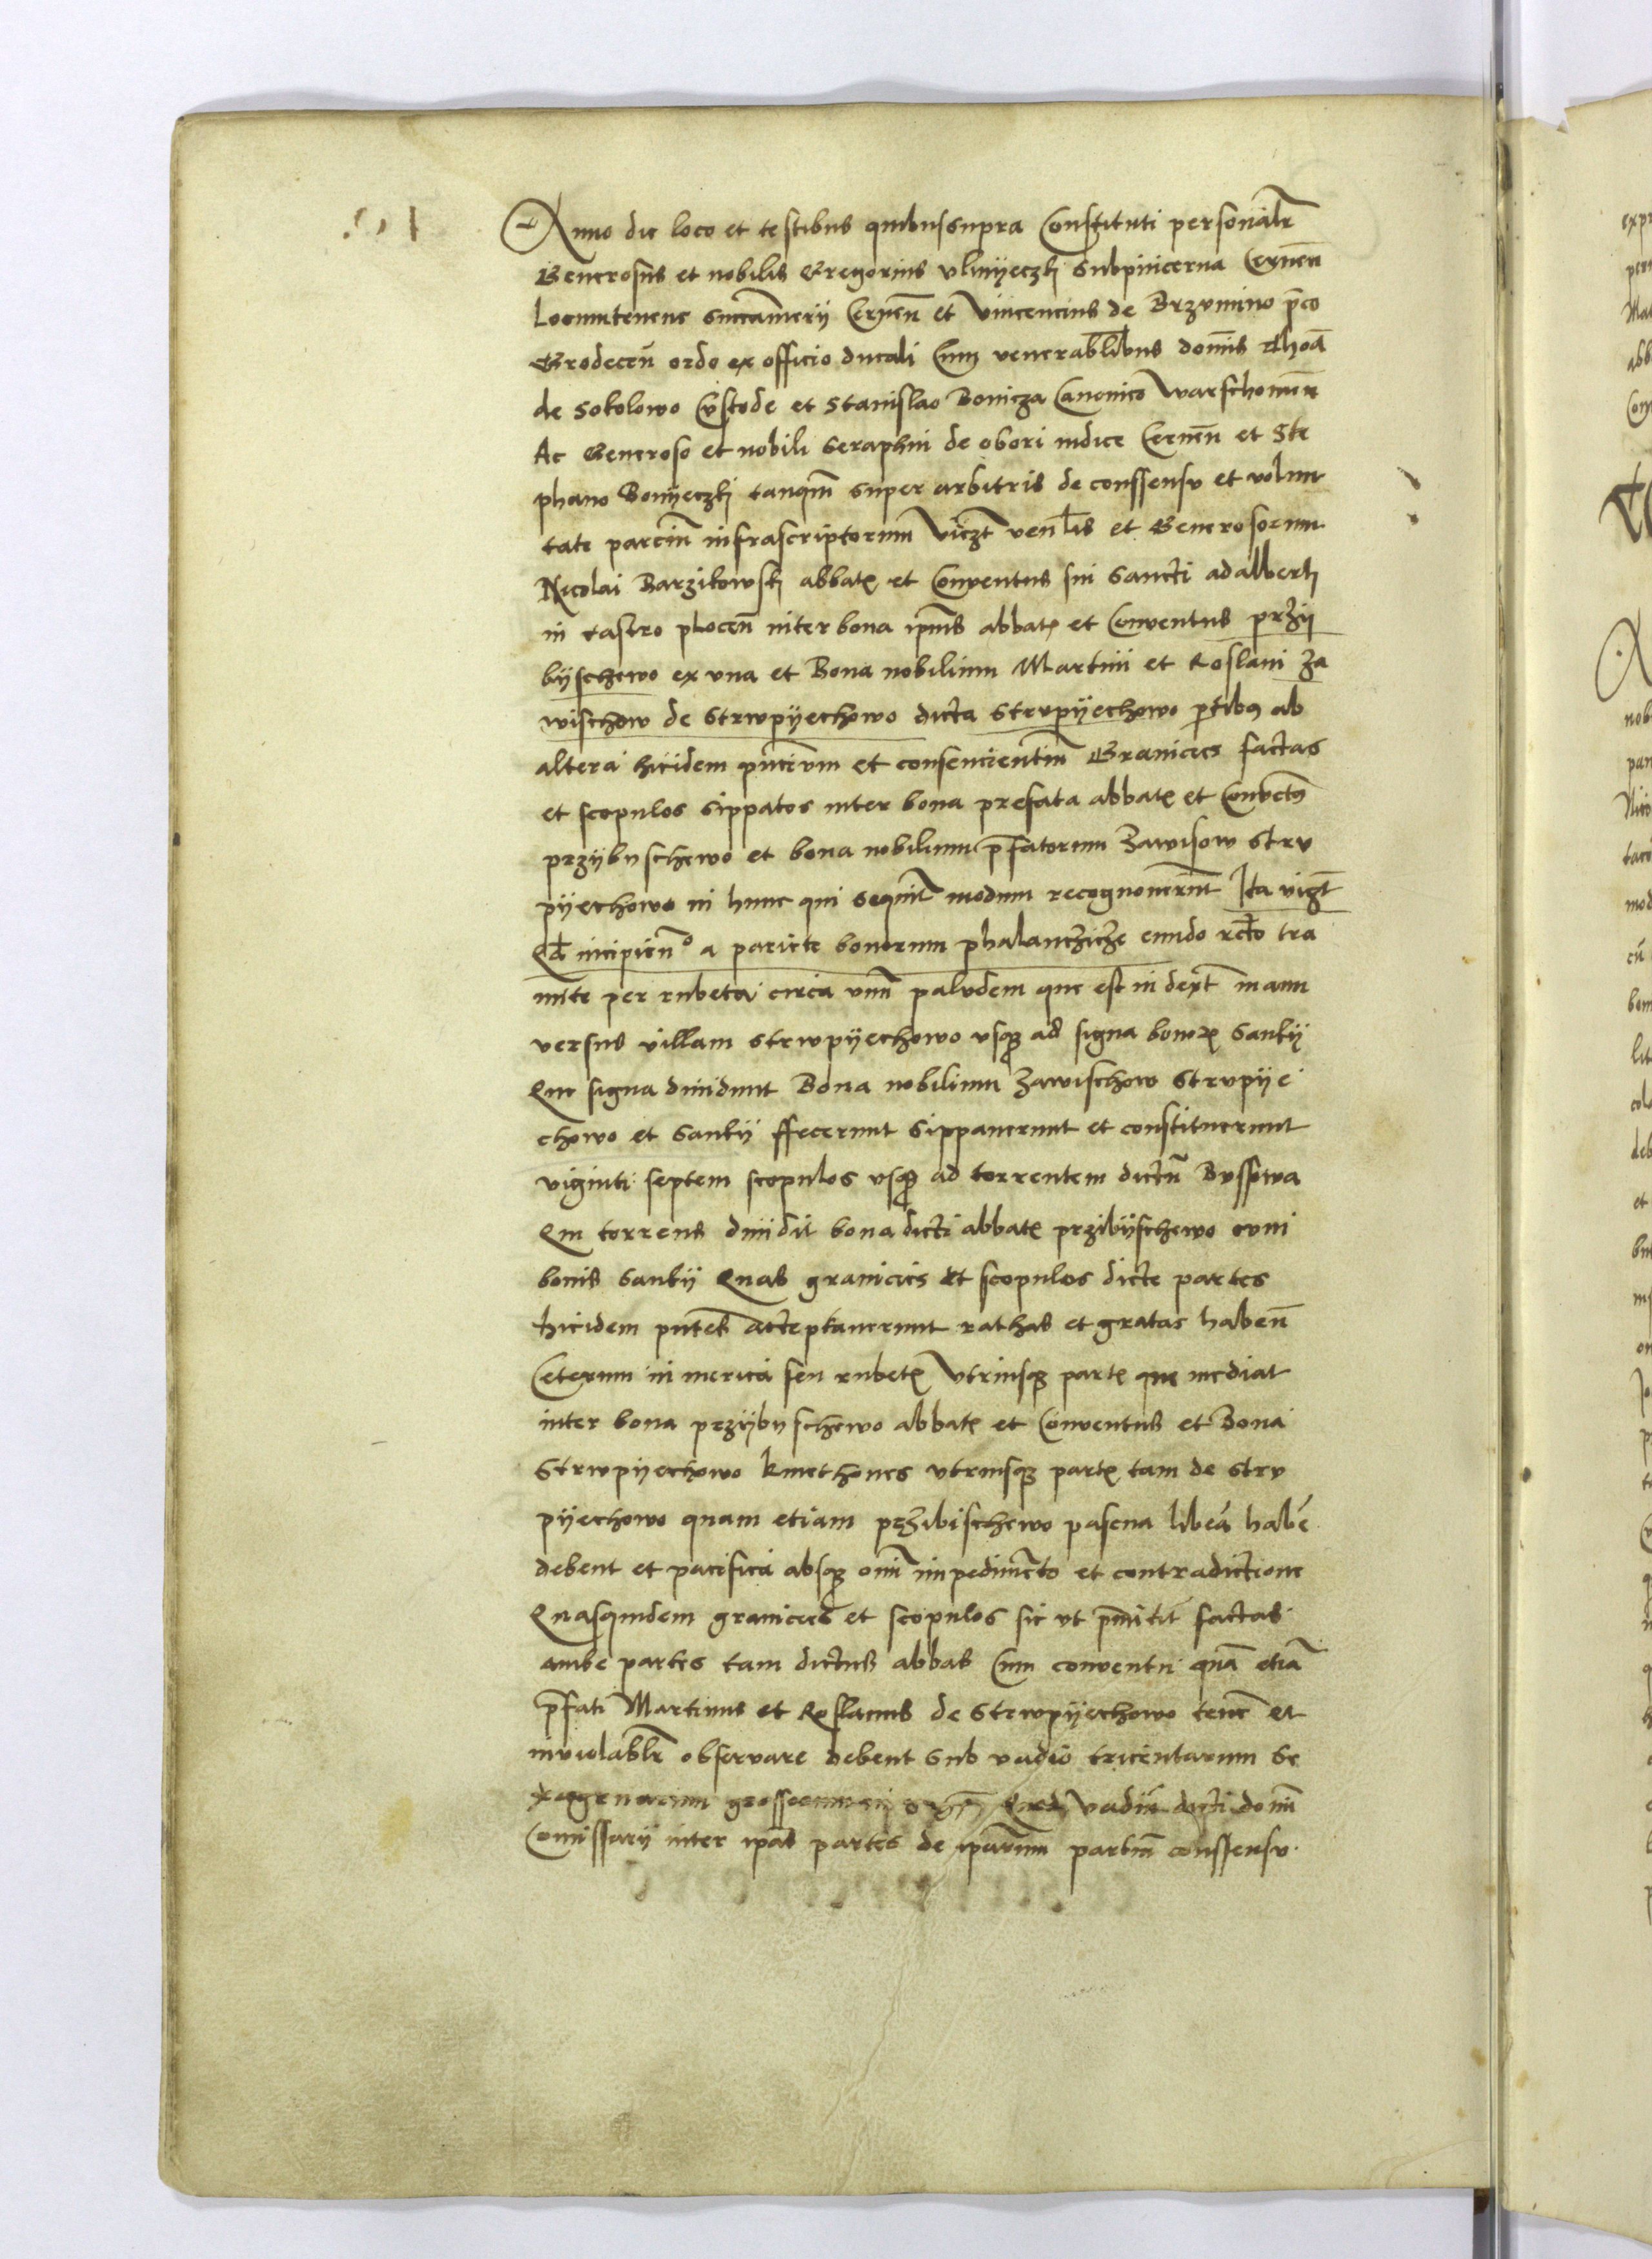 Anno die loco et testibus quibussupra Constituti personalr̄
Generosus et nobilis Gregorius vlinÿeczkj Subpincerna Cernen̄
Locumtenens succam̄erij Cernen̄ et Vincencius de Brzvmino p̄co
Grodecen̄ ordo ex officio ducali Cum venerabl̄ibus dom̄is Thoā
de Sokolowo Custode et Stanislao Bonicza Canonico Warschouien̄
Ac Generoso et nobili Seraphin de obori iudice Cernen̄ et Ste
phano Bonÿeczkj tanqm̄ super arbitris de conssensu et volun
tate parciū infrascriptorum Viczt ven̄lis et Generosorum
Nicolai Barzikowskj abbatꝭ et Conventus sui Sancti adalberti
in castro plocen̄ inter bona ip̄ius abbatꝭ et Conventus przÿ
bÿschewo ex vna et Bona nobilium Martini et Roslani Za
wischow de Strwpÿechowo dicta Strvpÿechowo ꝑtibꝰ ab
altera hicidem pn̄cium et consencientiū Granicies factas
et scopulos sippatos inter bona prefata abbatꝭ et Conuētꝰ
przÿbyschewo et bona nobilium p̄fatorum Zawisow Strv
pÿechowo in hunc qui sequit̄ modum recognouerūt Ita vigt̄
Qd̄ incipienº a pariete bonorum phalanczicze eundo rc̄to tra
mite per rubeta circa vnā paludem que est in dext̄ manu
versus villam Strwpÿechowo vsqꝫ ad signa bonorꝭ Sankÿ
Que signa diuidunt Bona nobilium Zawischow Strvpÿe
chowo et Sankÿ ffecerunt Sippauerunt et constituerunt
viginti septem scopulos vsqꝫ ad torrentem dictū Byssowa
Qui torrens diuidit bona dicti abbatꝭ przibÿschewo cvm
bonis Sankÿ Quas granicies et scopulos dicte partes
hicidem pn̄tes Acceptauerunt rathas et gratas haben̄
Ceterum in merica seu rubetꝭ Vtriusqꝫ partꝭ que mediat
inter bona przÿbyschewo abbatꝭ et Conventus et Bona
Strwpyechowo kmethones vtriusqꝫ partꝭ tam de Strv
pÿechowo quam etiam przibischewo pascua libeā habē
debent et pacifica absqꝫ om̄i impedimēto et contradictione
Quasquidem granicies et scopulos sic vt p̄mitit̄ factas
ambe partes tam dictus abbas Cum conventu quā etiā
p̄fati Martinus et Roslanus de Strwpÿechowo tenē et
inviolablr̄ observare debent Sub vadio tricentarum Se
xagenarum grossorum Quod vadiū dicti domī
Comissarij inter ip̄as partes de ip̄arum partiū conssensv